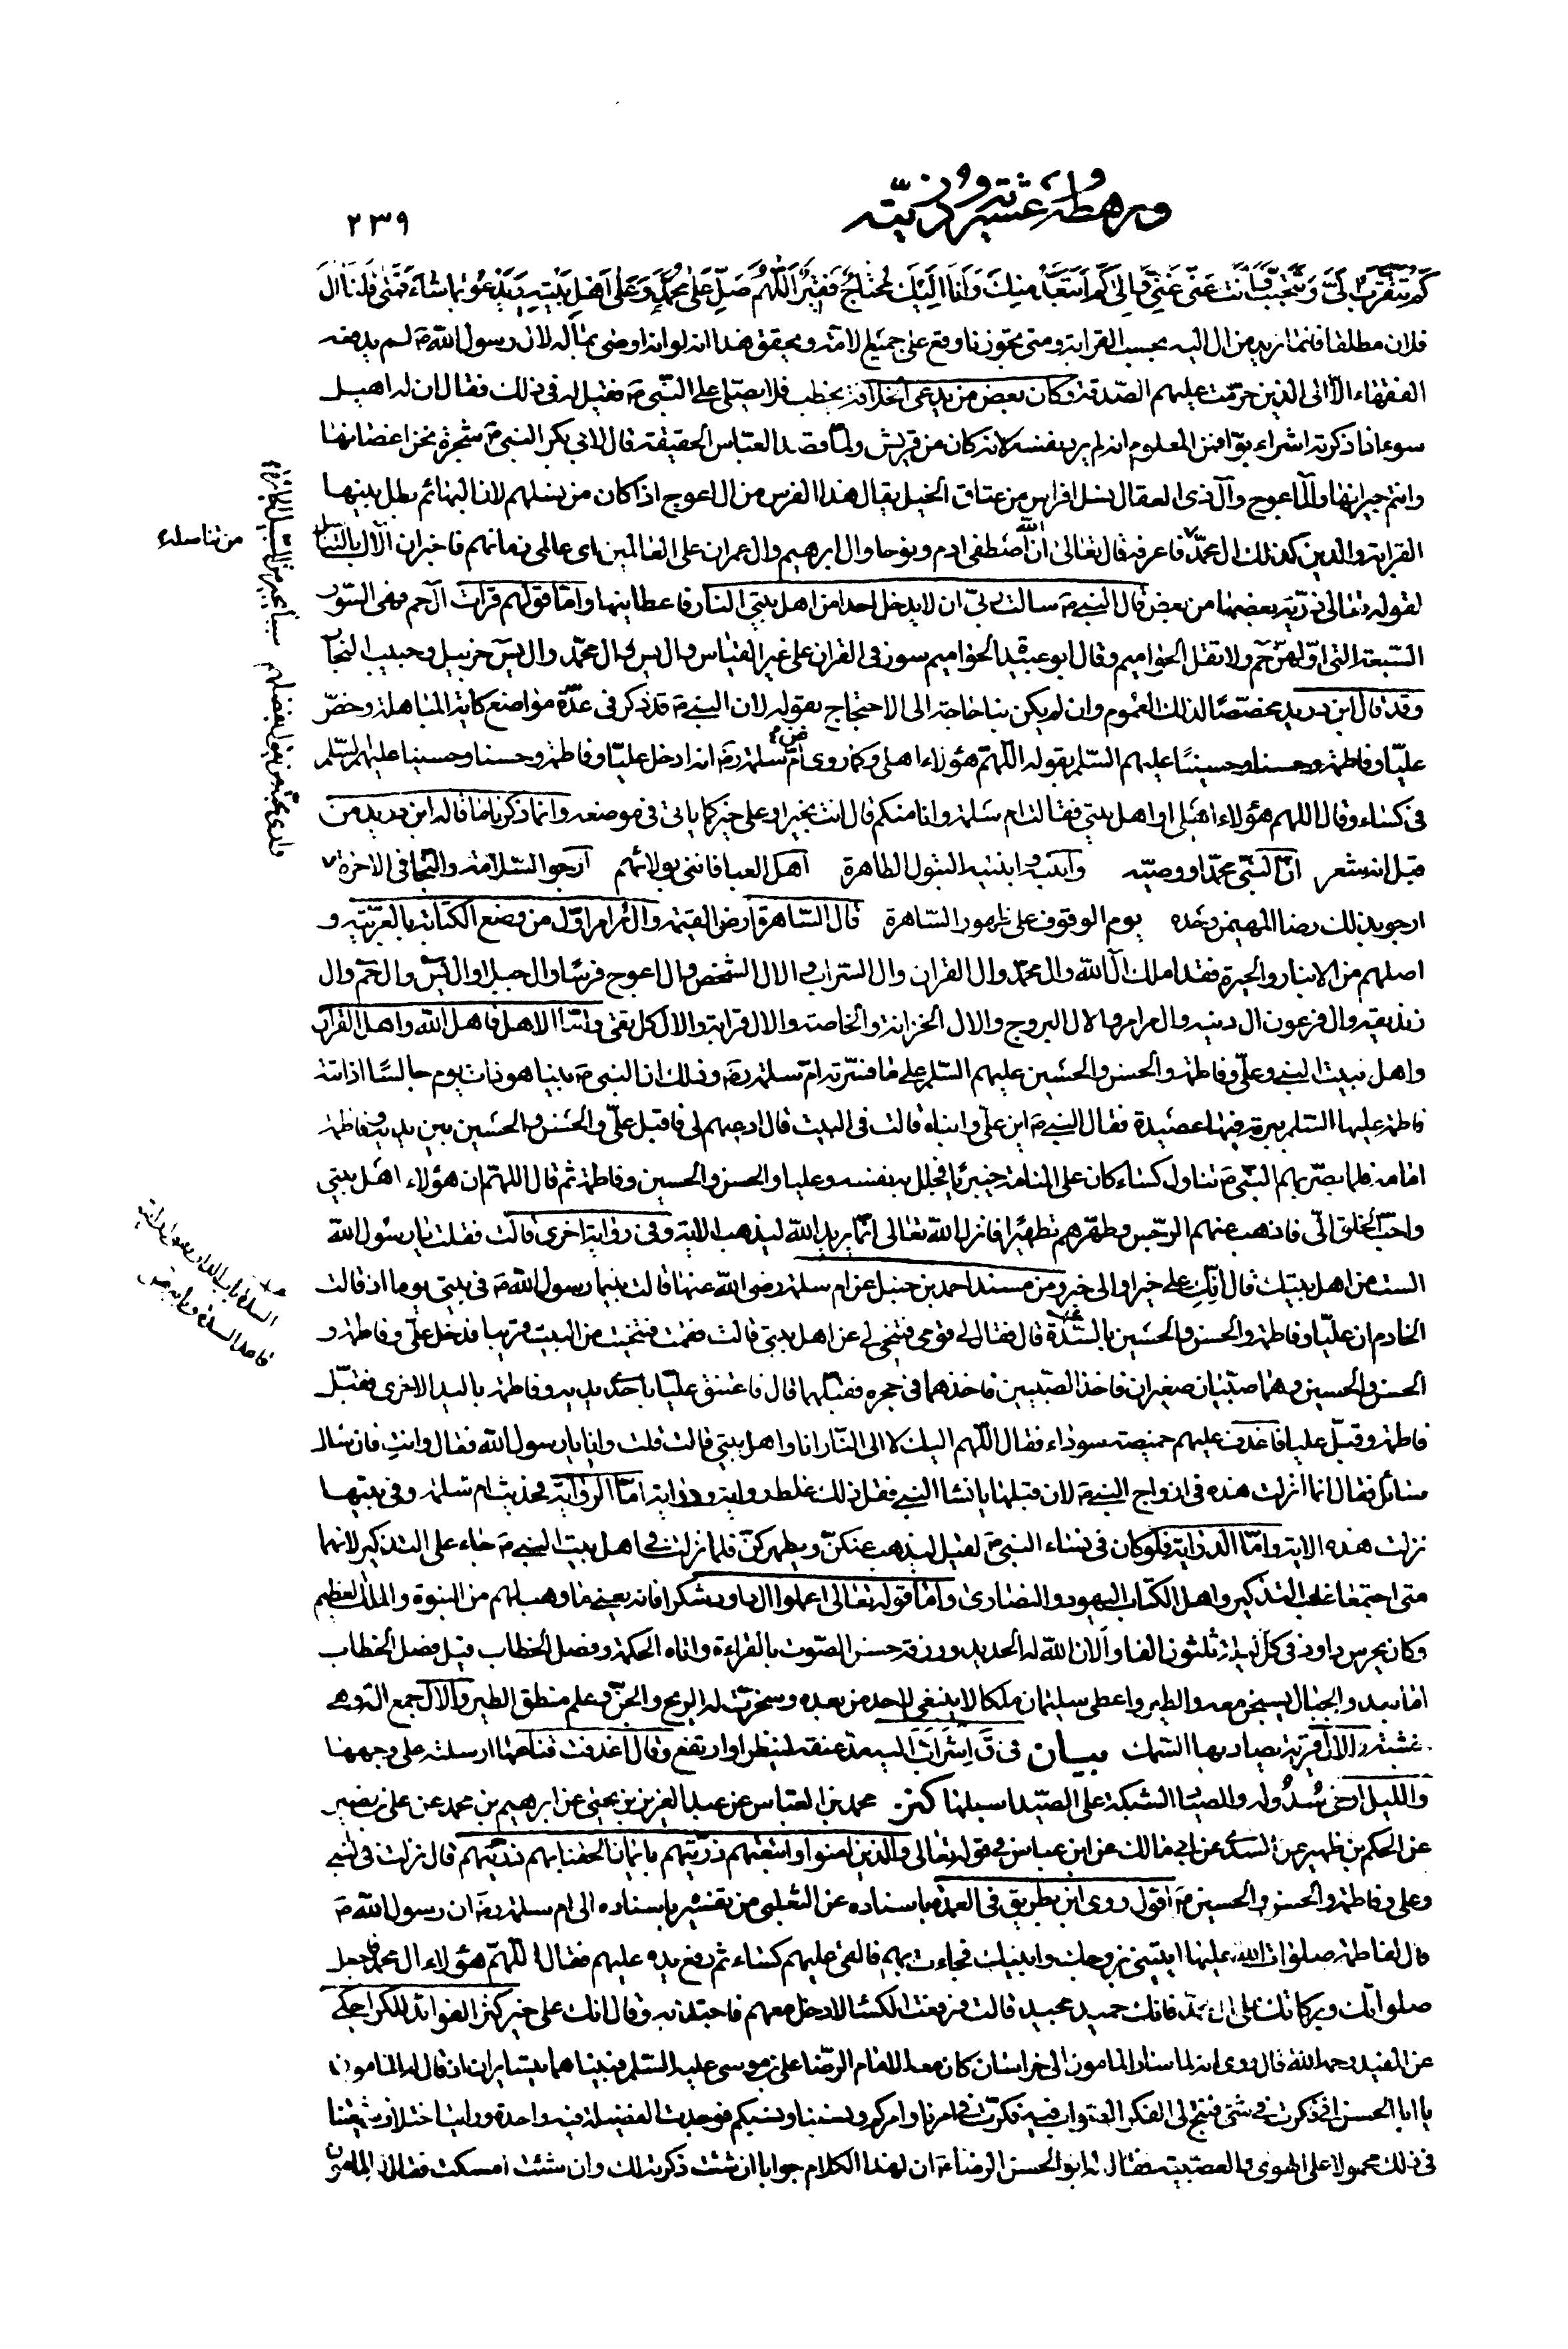 ورهطه وعشيرته وذريته
٢٣٩
كم تتقرب الي وتتحبب وانت عني غني فإلى كم اتبعد منك وانا اليك محتاج فقير اللهم صل على محمد وعلى اهل بيته ويدعو بما شاء فمتى قلنا آل
فلان مطلقا فانما نريد من آل اليه بحسب القرابة ومتى تجوزنا وقع على جميع الامة ويحقق هذا انه لو انه اوصى بماله لال رسول الله ص لم يدفعه
الفقهاء الا الى الذين حرمت عليهم الصدقة وكان بعض من يدعي الخلافة يخطب فلا يصلي على النبي ص فقيل له في ذلك فقال ان له اهيل
سوء اذا ذكرته اشرابوا فمن المعلوم انه لم يرد نفسه لانه كان من قريش ولما قصد العباس الحقيقة قال لابي بكر النبي ص شجرة نحن اغصانها
وانتم جيرانها وآل اعوج وآل ذي العقال نسل افراس من عتاق الخيل يقال هذا الفرس من آل اعوج اذا كان من نسلهم لان البهائم بطل بينها
القرابة والدين كذلك آل محمد من تناسله فاعرفه قال تعالى ان الله اصطفى ادم ونوحا وآل ابرهيم وآل عمران على العالمين اى عالمي زمانهم فاخبر ان الآل بالتناسل
لقوله تعالى ذرية بعضها من بعض قال النبي ص سالت ربي ان لا يدخل احدا من اهل بيتي النار فاعطانيها واما قولهم قرات آل حم فهي السور
السبعة التى اولهن حم ولا تقل الحواميم وقال ابو عبيدة الحواميم سور في القران على غير القياس وآل يس آل محمد وآل يس حزبيل وحبيب النجار
وقد قال ابن دريد مخصصا لذلك العموم وان لم يكن بنا حاجة الى الاحتجاج بقوله لان النبي ص قد ذكر في عدة مواضع كاية المباهلة وخص
عليا وفاطمة وحسنا وحسينا عليهم السلم بقوله اللهم هؤلاء اهلي وكما روى ام سلمة رض انه ادخل عليا وفاطمة وحسنا وحسينا عليهم السلم
في كساء وقال اللهم هؤلاء اهلي او اهل بيتي فقالت ام سلمة وانا منكم قال انت بخير او على خير كما ياتى في موضعه وانما ذكرنا ما قاله ابن دريد من
قبل انه شعر ان النبي محمدا ووصيه وابنيه وابنته البتول الطاهرة اهل العبا فانني بولائهم ارجو السلامة والنجا في الاخرة
ارجو بذلك رضا المهيمن وحده يوم الوقوف على ظهور الساهرة قال الساهرة ارض القيمة وآل مرامر اول من وضع الكتابة بالعربية و
اصلهم من الانبار والحيرة فقد املك آل الله وآل محمد وآل القران وآل السراب والآل الشخص وآل اعوج فرسا وآل جبلا وآل يس وآل حم وآل
زنديقه وآل فرعون آل دينه وآل مرامر والآل البروج والآل الحزانة والخاصة والآل قرابة والآل كل تقي واما الاهل فاهل الله واهل القران
واهل بيت النبي وعلي وفاطمة والحسن والحسين عليهم السلم على ما فسرته ام سلمة رض وذلك ان النبي ص بينا هو ذات يوم جالسا اذ اتته
فاطمة عليها السلم ببرمة فيها عصيدة فقال النبي ص اين علي وابناه قالت في البيت قال ادعيهم لي فاقبل علي والحسن والحسين بين يديه وفاطمة
امامه فلما بصر بهم النبي ص تناول كساء كان على المنامة خيبريا فجلل به نفسه وعليا والحسن والحسين وفاطمة ثم قال اللهم ان هؤلاء اهل بيتي
واحب الخلق الي فاذهب عنهم الرجس وطهرهم تطهيرا فانزل الله تعالى انما يريد الله ليذهب الاية وفي رواية اخرى قالت فقلت يا رسول الله
الست من اهل بيتك قال انك على خير او الى خير ومن مسند احمد بن حنبل عن ام سلمة رضى الله عنها قالت بينما رسول الله ص في بيتي يوما اذ قالت
الخادم ان عليا وفاطمة والحسن والحسين بالسدة قال فقال لي قومي فتنحي لي عن اهل بيتي قالت فقمت فتنحيت من البيت قريبا فدخل علي وفاطمة و
الحسن والحسين وهما صبيان صغيران فاخذ الصبيين فاخذهما في حجره فقبلهما قال فاعتنق عليا باحدى يديه وفاطمة باليد الاخرى فقبل
فاطمة وقبل عليا فاغدف عليهم خميصة سوداء فقال اللهم اليك لا الى النار انا واهل بيتي قالت قلت وانا يا رسول الله فقال وانت فان سال
سائل فقال انما انزلت هذه في ازواج النبي ص لان قبلها يا نساء النبي فقل ذلك غلط رواية ودراية اما الرواية فحديث ام سلمة وفي بيتها
نزلت هذه الاية واما الدراية فلو كان في نساء النبي ص لقيل ليذهب عنكن ويطهركن فلما نزلت في اهل بيت النبي ص جاء على التذكير لانهما
متى اجتمعا غلب التذكير واهل الكتاب اليهود والنصارى واما قوله تعالى اعملوا آل داود شكرا فانه يعني ما وهب لهم من النبوة والملك العظيم
وكان يحرس داود في كل ليلة ثلثون الفا وألان الله له الحديد ورزقه حسن الصوت بالقراءة واتاه الحكمة وفصل الخطاب قيل فصل الخطاب
اما بعد والجبال يسبحن معه والطير واعطى سليمان ملكا لا ينبغي لاحد من بعده وسخرت له الريح والجن وعلم منطق الطير والآل جمع آلة وهي
خشبة والآل قرية يصاد بها السمك بيان في ق اشراب اليه مد عنقه لينظر او ارتفع وقال اغدفت قناعها ارسلته على وجهها
والليل ارخى سدوله والصياد الشبكة على الصيد اسبلها كنز محمد بن العباس عن عبد العزيز بن يحيى عن ابرهيم بن محمد عن علي بن نصير
عن الحكم بن ظهير عن السدى عن ابي مالك عن ابن عباس في قوله تعالى والذين امنوا واتبعتهم ذريتهم بايمان الحقنا بهم ذريتهم قال نزلت في النبي
وعلي وفاطمة والحسن والحسين ص اقول روى ابن بطريق في العمدة باسناده عن الثعلبي من تفسيره باسناده الى ام سلمة رض ان رسول الله ص
قال لفاطمة صلوات الله عليها ايتيني بزوجك وابنيك فجاءت بهم فالقى عليهم كساء ثم رفع يده عليهم فقال اللهم هؤلاء آل محمد فاجعل
صلواتك وبركاتك على آل محمد فانك حميد مجيد قالت فرفعت الكساء لادخل معهم فاجتذبه وقال انك على خير كنز الفوائد للكراجكى
عن المفيد رحمه الله قال روى انه لما سار المامون الى خراسان كان معه الامام الرضا علي بن موسى عليه السلم فبينا هما يتسايران اذ قال له المامون
يا ابا الحسن اني فكرت في شيء فنتج لي الفكر الصواب فيه فكرت في امرنا وامركم ونسبنا ونسبكم فوجدت الفضيلة فيه واحدة ورايت اختلاف شيعتنا
في ذلك محمولا على الهوى والعصبية فقال له ابو الحسن الرضا ع ان لهذا الكلام جوابا ان شئت ذكرته لك وان شئت امسكت فقال له المامون
من تناسله